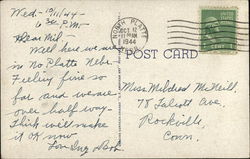 Wed - 10/11/44 -
6 P.M.
NORTH PLATTE
OCT 12
1944
POST CARD
Dear Mil -
Well here we are
in No. Platte Nebr.
Feeling fine so
far and we are
over half way -
Think we'll make
it OK now
Miss Mildred McNeill,
78 Talcott Ave,
Rockville
Conn.